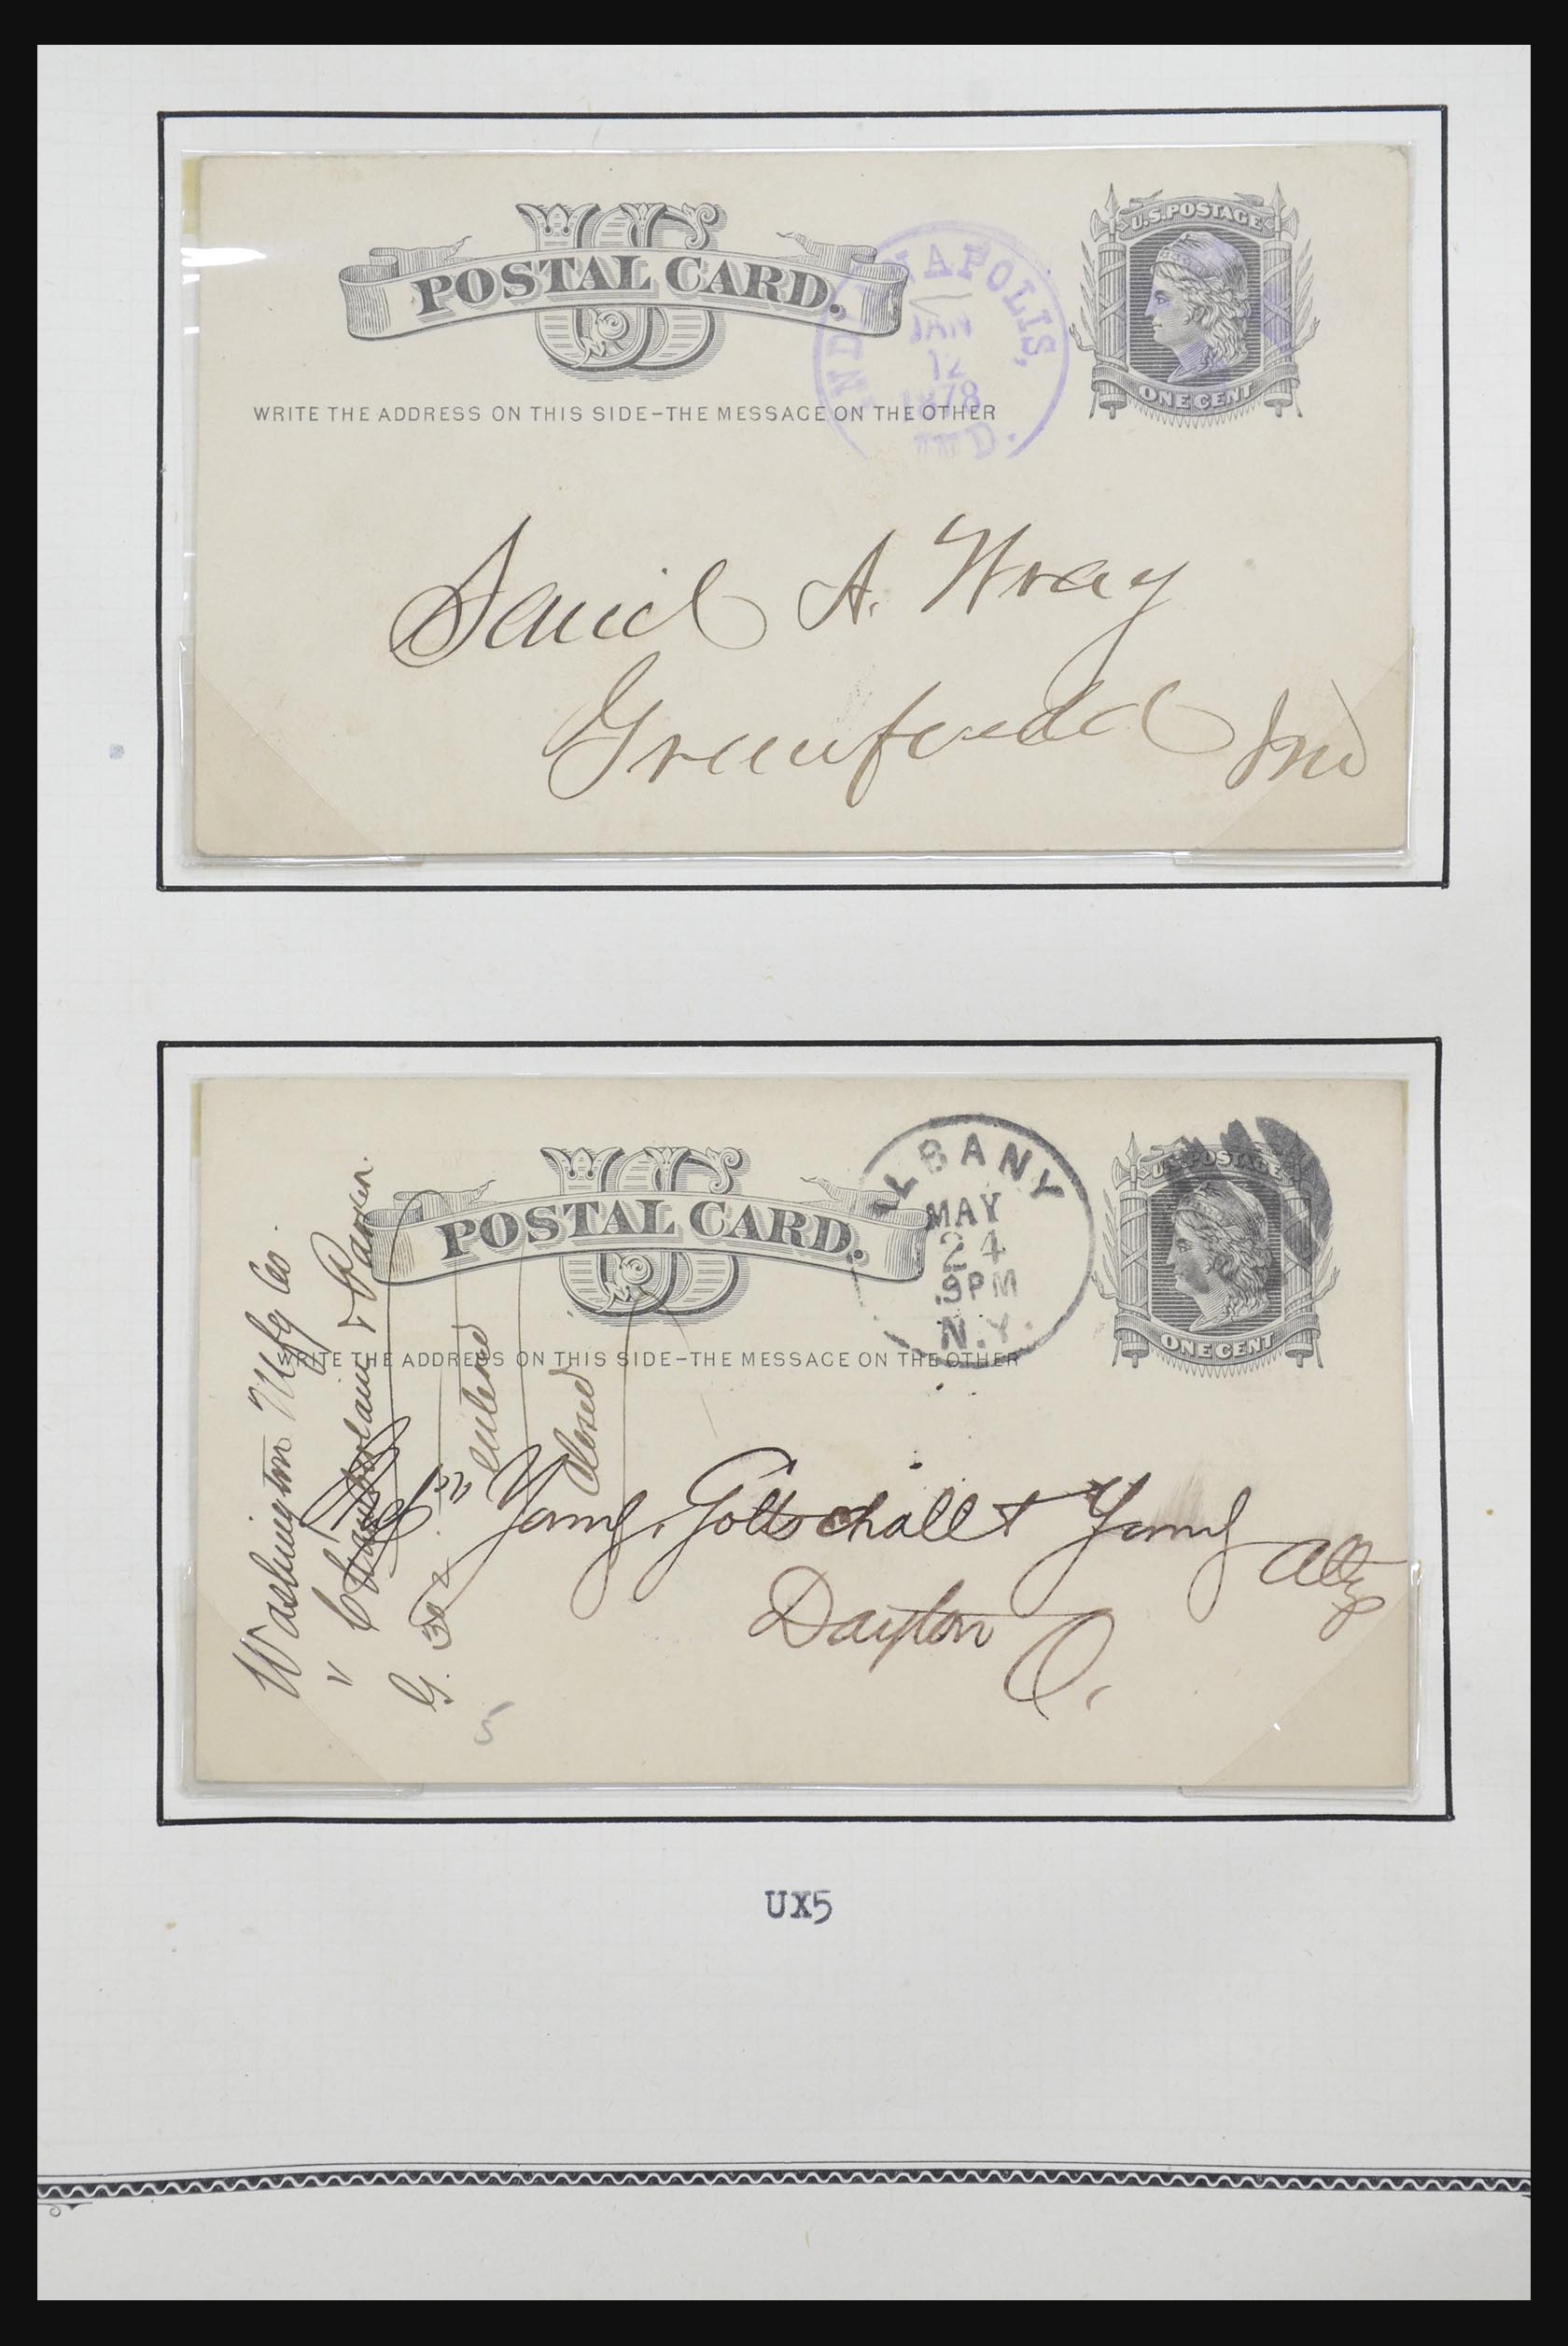 US
POSTAL CARD.
U.S. POSTAGE
ONE CENT
INDIANAPOLIS,
JAN
12
1878
IND.
WRITE THE ADDRESS ON THIS SIDE–THE MESSAGE ON THE OTHER
A. Wray
Greenfield Ind
US
POSTAL CARD.
U.S. POSTAGE
ONE CENT
ALBANY
MAY
24
9PM
N.Y.
WRITE THE ADDRESS ON THIS SIDE–THE MESSAGE ON THE OTHER
Washington Mfg Co.
" Chamberlain &
G.
Young, Gottschall & Young Attys
Dayton
O.
5
UX5